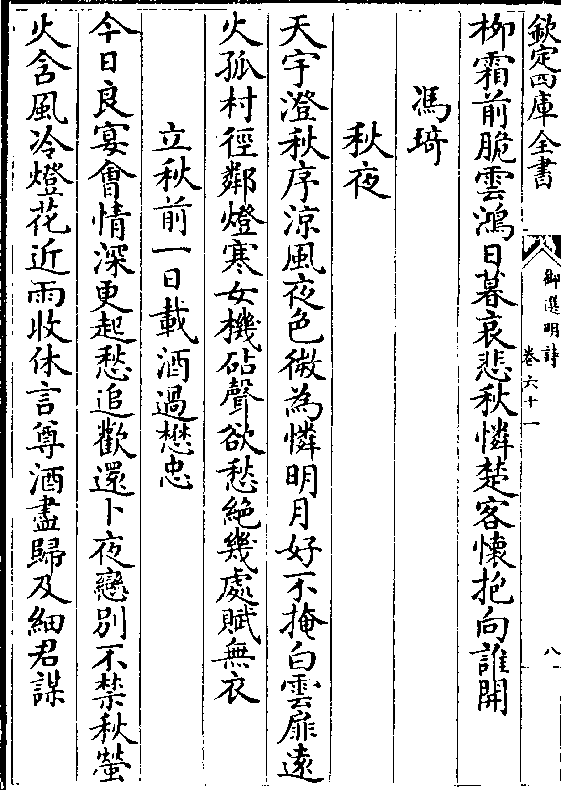 欽定四庫全書
御選明詩
卷六十一
八
柳霜前脆雲鴻日暮哀悲秋憐楚客懷抱向誰開
馮琦
秋夜
天宇澄秋序涼風夜色微為憐明月好不掩白雲扉遠
火孤村徑鄰燈寒女機砧聲欲愁絕幾處賦無衣
立秋前一日載酒過懋忠
今日良宴會情深更起愁追歡還卜夜戀別不禁秋螢
火含風冷燈花近雨收休言尊酒盡歸及細君謀